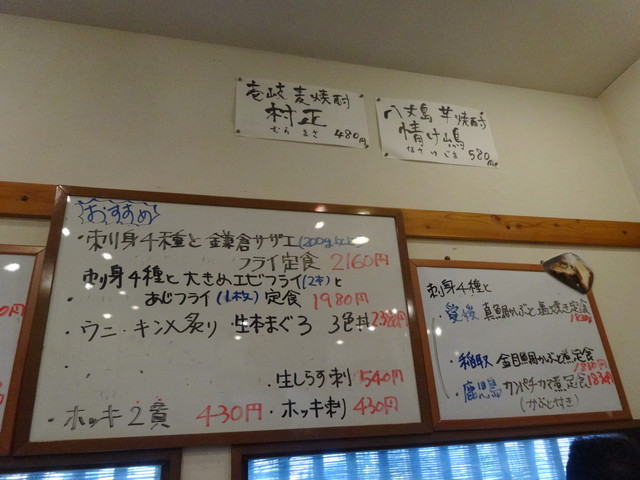 壱岐 麦焼酎
村正
むらまさ 480円
八丈島 芋焼酎
情け嶋
なさけしま 580円
おすすめ
・刺身4種と鎌倉サザエ(200g以上)
フライ定食 2160円
・刺身4種と大きめエビフライ(2本)と
あじフライ(1枚)定食 1980円
・ウニ・キンメ炙り 生本まぐろ 3色丼
生しらす刺 540円
・ホッキ2貫 430円・ホッキ刺 430円
刺身4種と
・愛媛 真鯛かぶと塩焼定食
・稲取 金目鯛かぶと煮定食
1830円
・鹿児島 カンパチカマ煮定食
(かぶと付き)